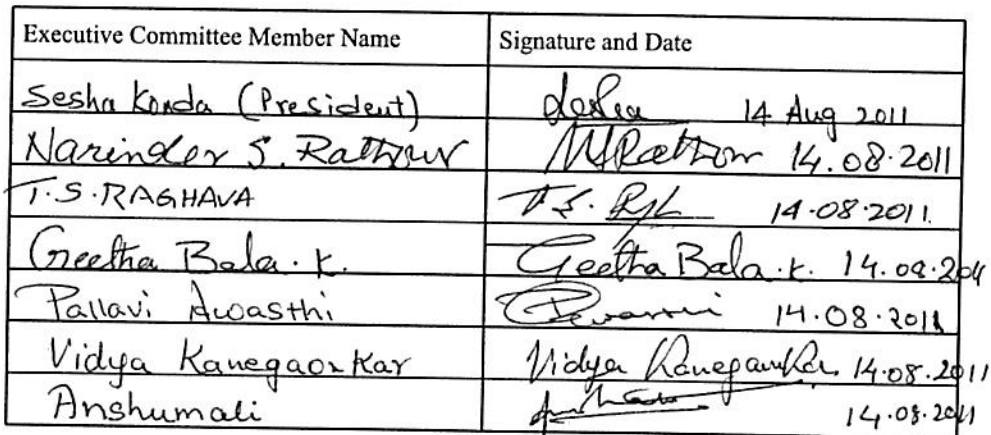 Executive Committee Member Name Signature and Date
Sesha Konda (President) 14 Aug 2011
Narinder S. Rathour NSRathour 14.08.2011
T.S.RAGHAVA T.S. 14.08.2011
Geetha Bala.K. Geetha Bala.K. 14.08.201
Pallavi Awasthi 14.08.2011
Vidya Kanegaonkar Vidya Kanegaonkar 14.08.2011
Anshumali 14.08.2011